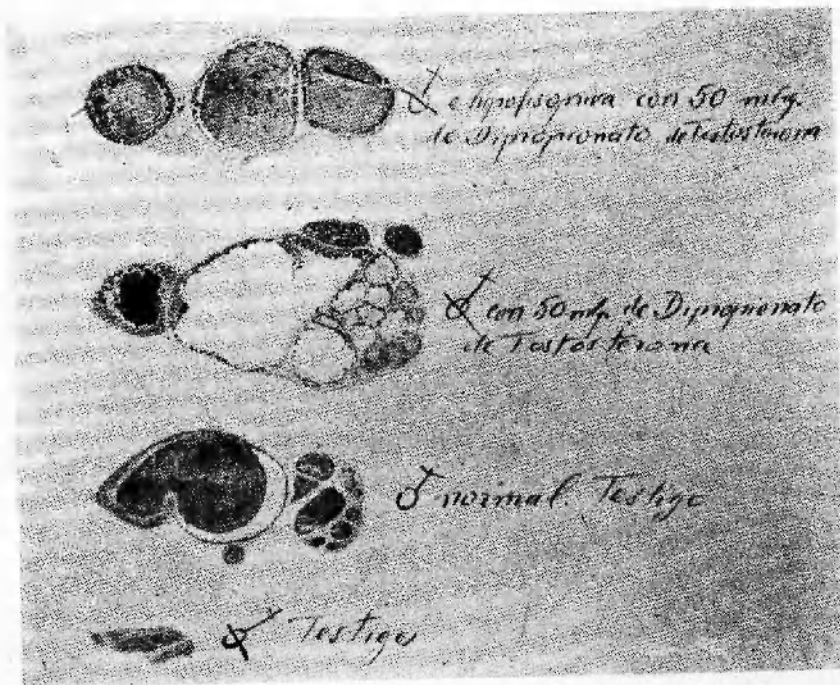 ♂ e hipofisopriva con 50 mlg.
de Dipropionato de Testosterona
♂ con 50 mlg. de Dipropionato
de Testosterona
♂ normal. Testigo
♂ Testigo